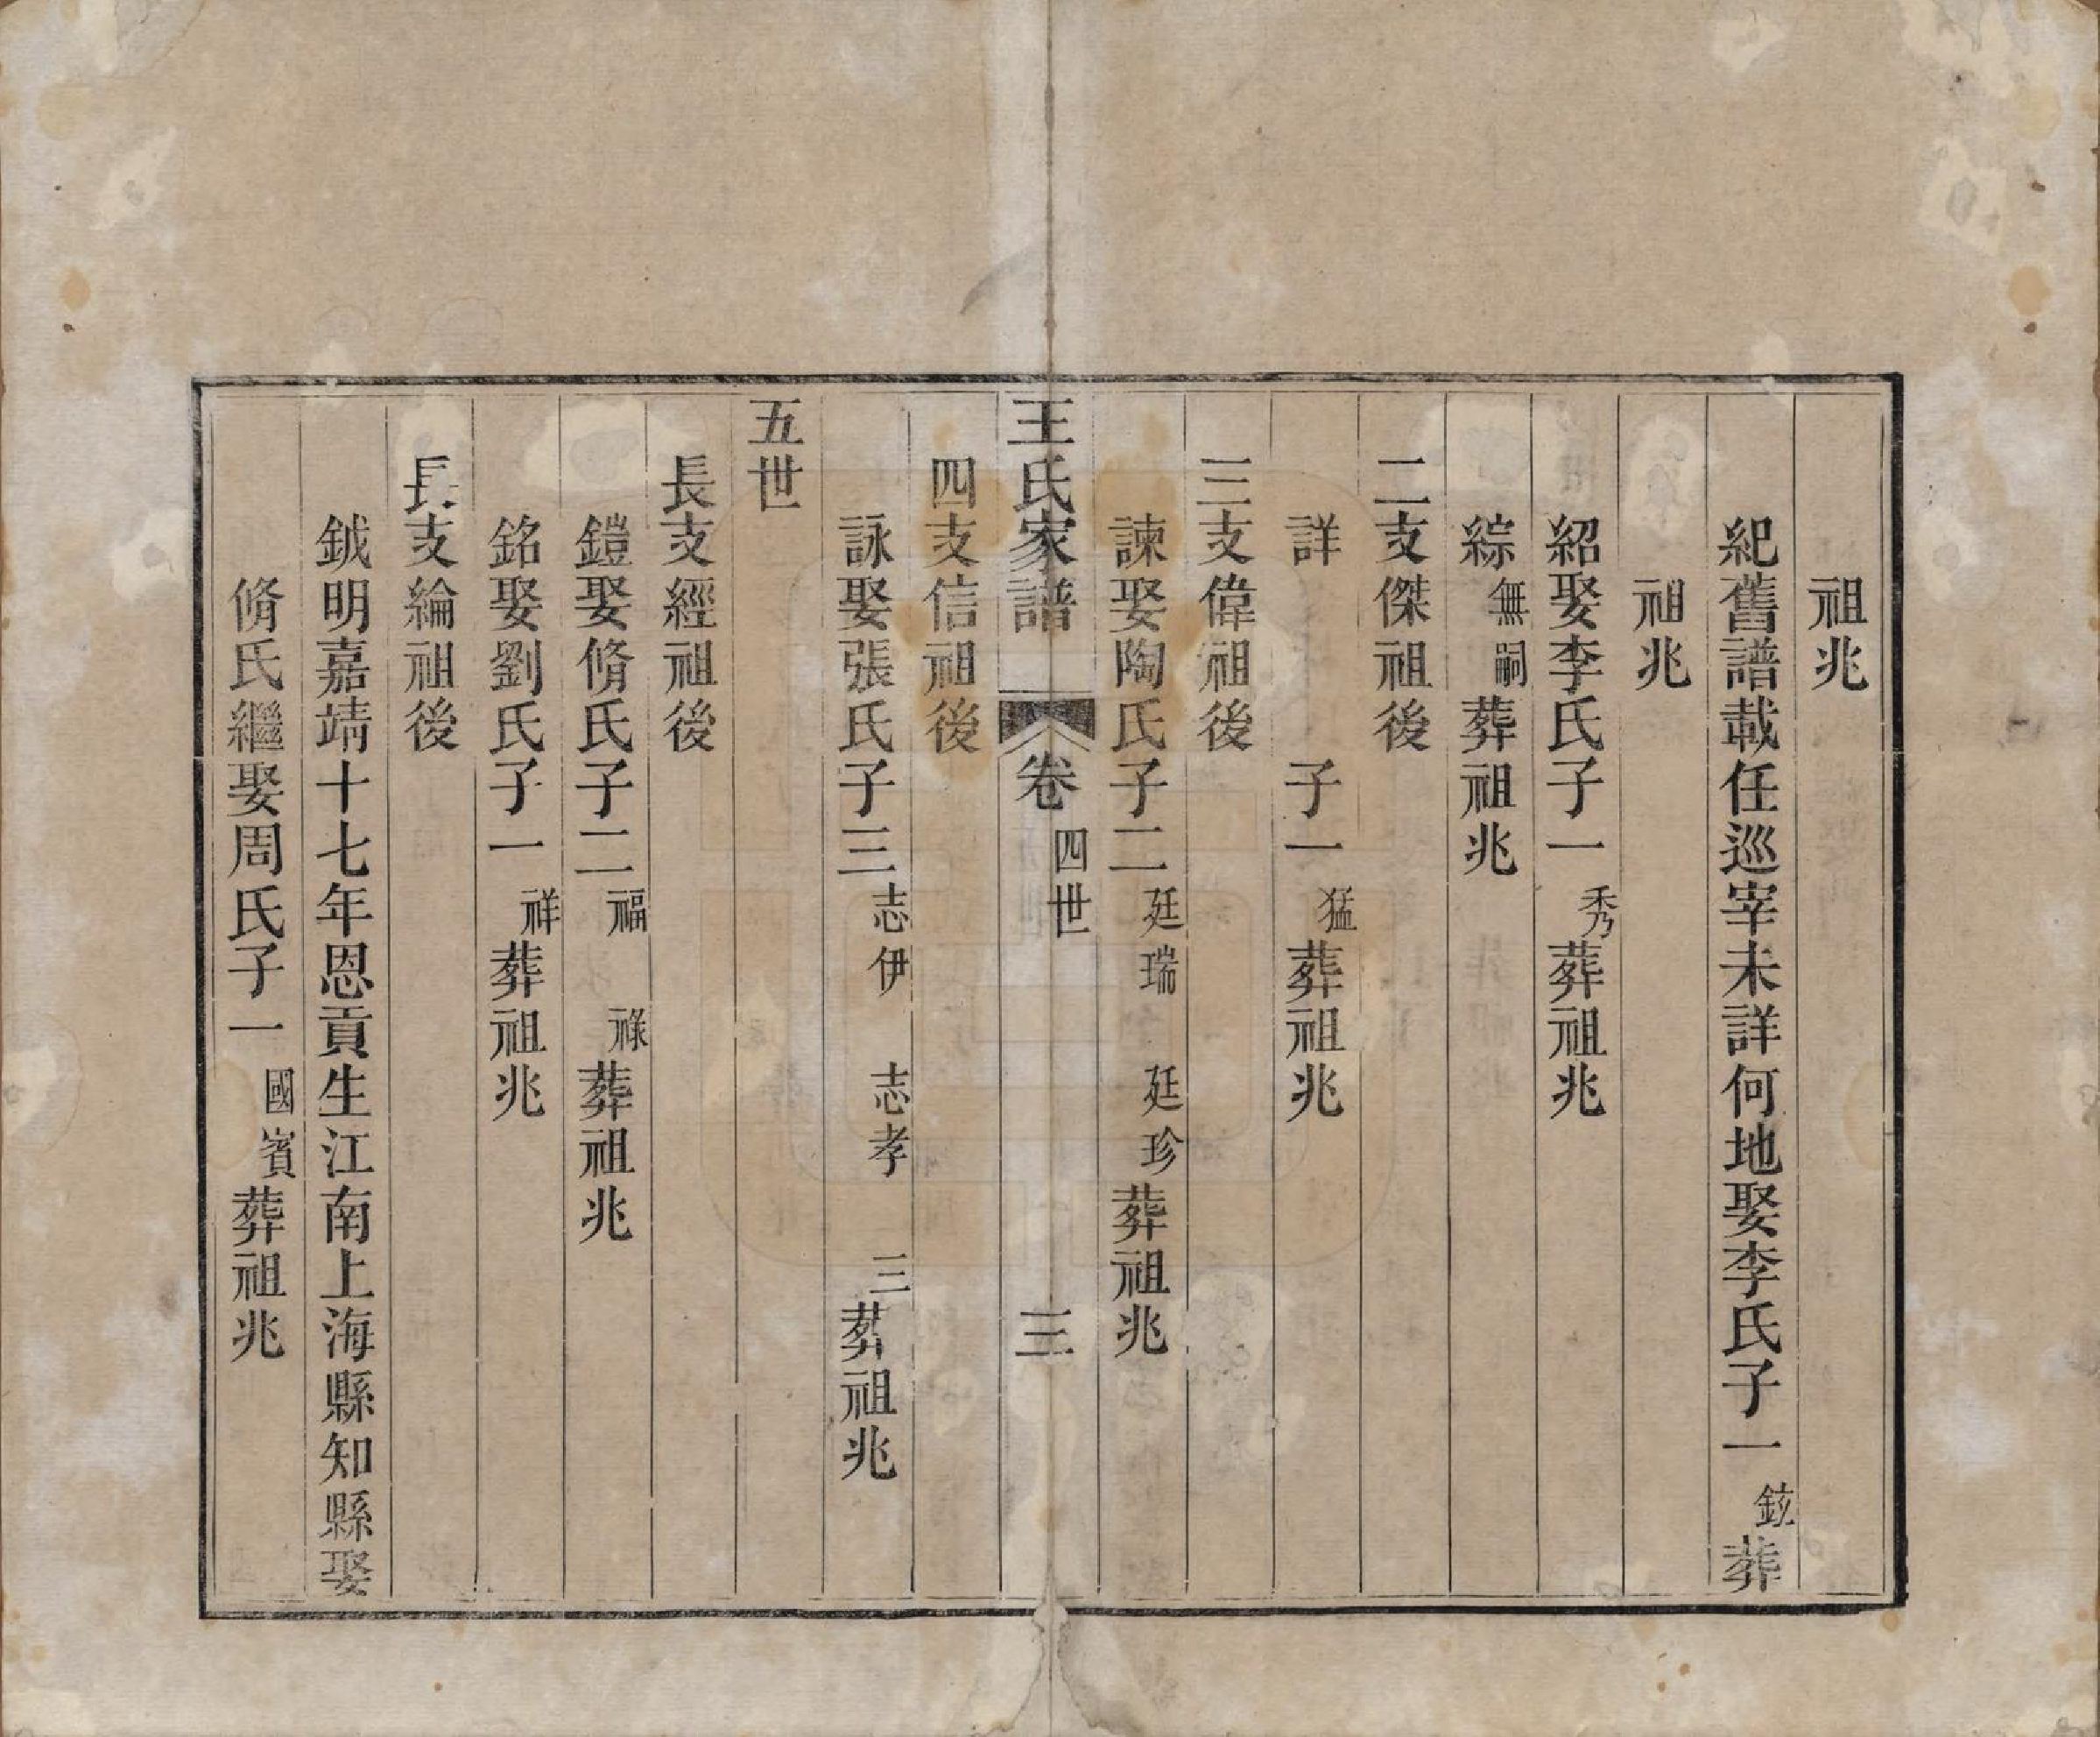 祖兆
紀舊譜載任巡宰未詳何地娶李氏子一鉉葬
祖兆
紹娶李氏子一秀葬祖兆
綜無嗣葬祖兆
二支傑祖後
詳　子一猛葬祖兆
三支偉祖後
諫娶陶氏子二廷瑞　廷珍葬祖兆
王氏家譜　卷　四世　三
四支信祖後
詠娶張氏子三志伊　志孝　三葬祖兆
五世
長支經祖後
鎧娶脩氏子二福　祿葬祖兆
銘娶劉氏子一祥葬祖兆
長支綸祖後
鉞明嘉靖十七年恩貢生江南上海縣知縣娶
脩氏繼娶周氏子一國賓葬祖兆